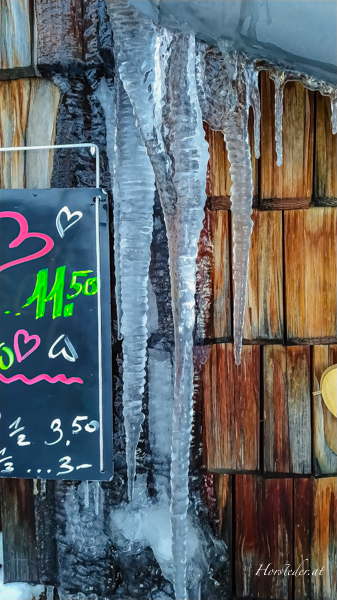 ..11.50
½ 3.50
⅓ ... 3.-
Horsleder.at